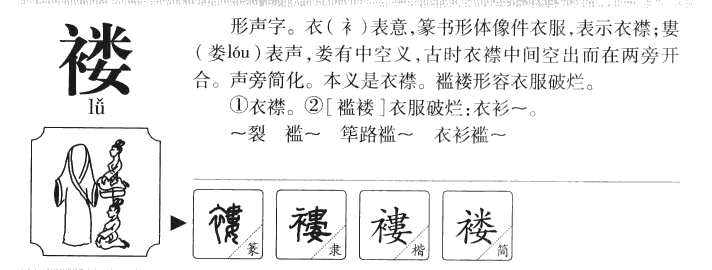 褛
lǚ
形声字。衣(衤)表意,篆书形体像件衣服,表示衣襟;婁
(娄lóu)表声,娄有中空义,古时衣襟中间空出而在两旁开
合。声旁简化。本义是衣襟。褴褛形容衣服破烂。
①衣襟。②[褴褛]衣服破烂:衣衫～。
～裂 褴～ 筚路褴～ 衣衫褴～
褸 篆 褸 隶 褸 楷 褛 简